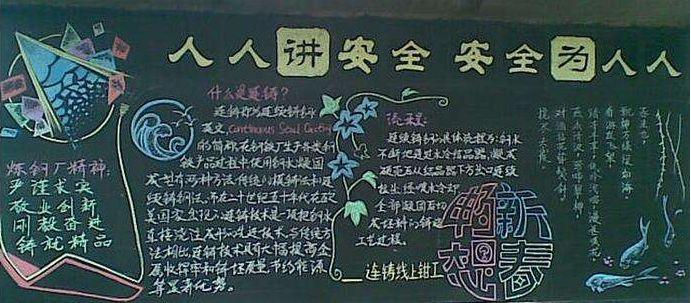 人人讲安全 安全为人人
炼钢厂精神:
严谨求实
敬业创新
刚毅奋进
铸就精品
什么是连铸?
连铸即为连续铸钢
英文, Continuous Steel Casting
的简称在钢铁厂生产各类钢
铁产品过程中使用钢水凝固
成型有两种方法传统的模铸法和连
续铸钢法,而在二十世纪五十年代在欧
美国家出现的连铸技术是一项把钢水
直接浇注成形的先进技术,与传统方
法相比,连铸技术具有大幅提高金
属收得率和铸坯质量,节约能源
等显著优势。
流程:
连续铸钢的具体流程为:钢水
不断地通过水冷结晶器,凝成
硬壳后从结晶器下方出口连续
拉出,经喷水冷却
全部凝固后切
成坯料的铸造
工艺过程。
——连铸线上钳工
新春
畅想